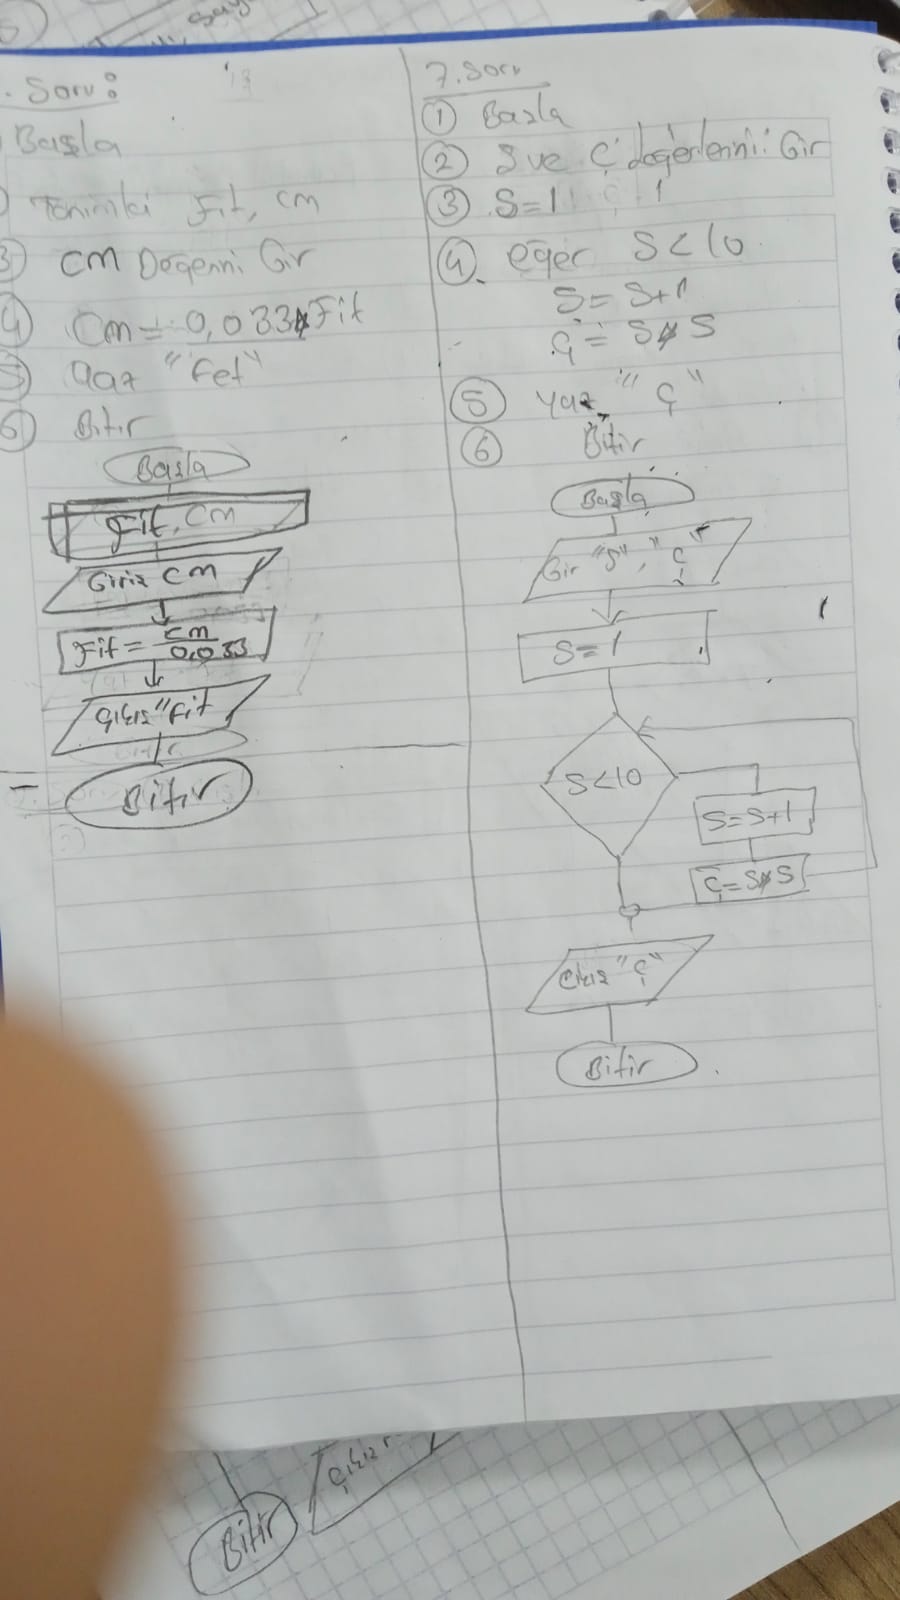 Soru:
Başla
Tanımla Fit, cm
3 cm Değerini Gir
4 Cm = 0,033*Fit
5 Yaz "Fet"
6 Bitir
Başla
Fit, Cm
Giriş Cm
Fit = cm/0,033
Çıkış "Fit
Bitir
7. Soru
1 Başla
2 S ve Ç değerlerini: Gir
3 S=1 1
4 eğer S<10
S=S+1
Ç=S*S
5 Yaz "Ç"
6 Bitir
Başla
Gir "S", "Ç"
S=1
S<10
S=S+1
Ç=S*S
Çıkış "Ç"
Bitir
Çıkış
Bitir